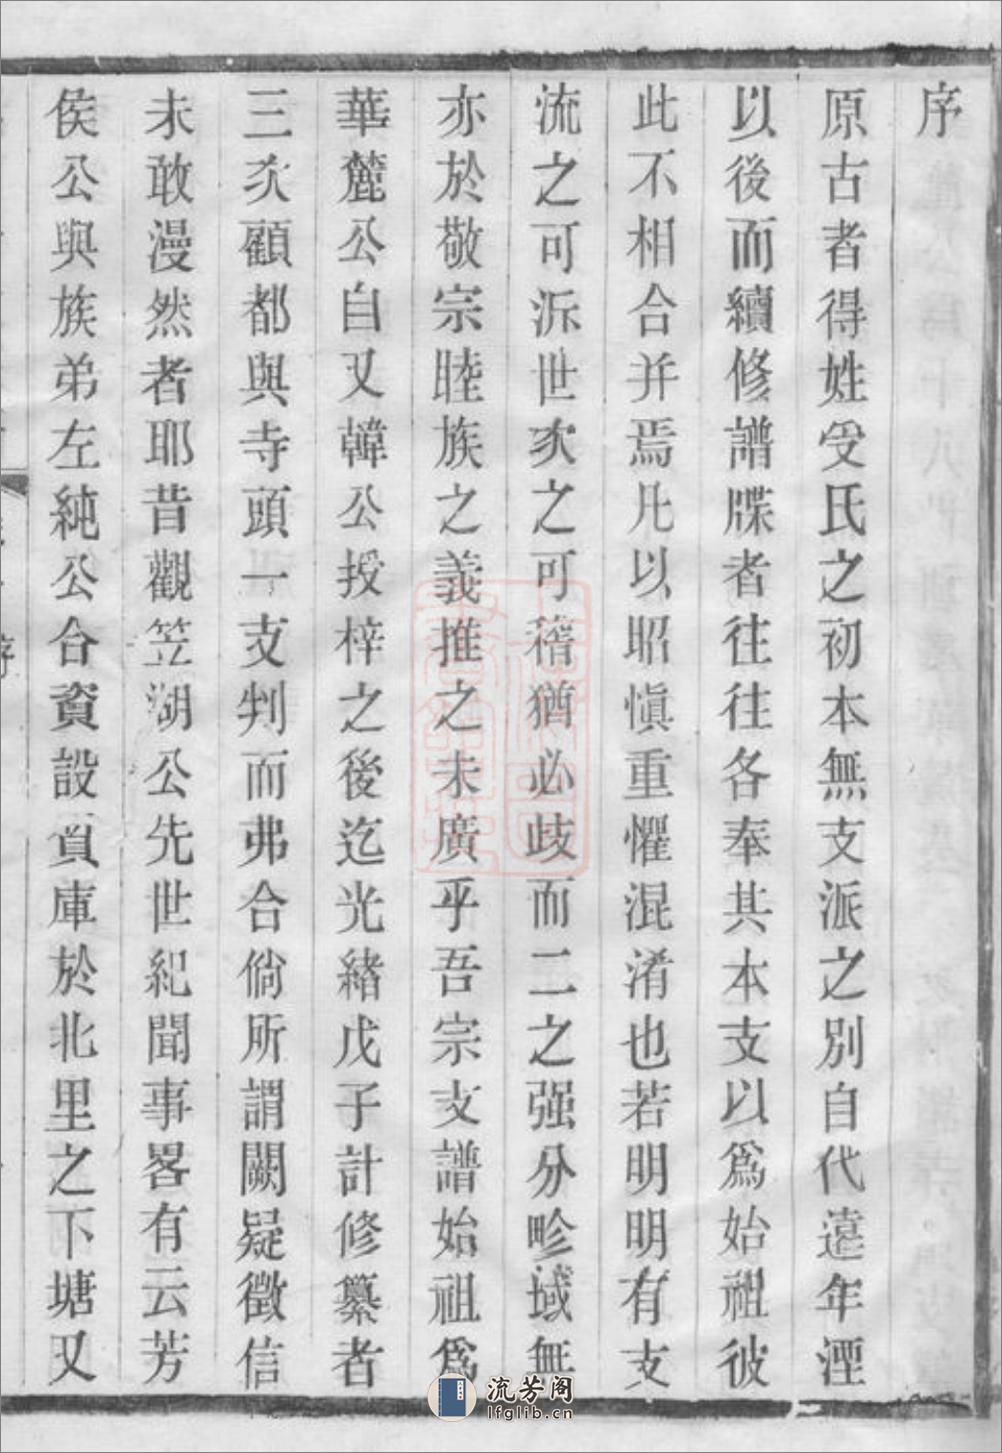 序
原古者得姓受氏之初本無支派之別自代遠年湮
以後而續修譜牒者往往各奉其本支以爲始祖彼
此不相合并焉凡以昭愼重懼混淆也若明明有支
流之可泝世次之可稽猶必歧而二之强分畛域無
亦於敬宗睦族之義推之未廣乎吾宗支譜始祖爲
華麓公自又韓公授梓之後迄光緒戊子計修纂者
三次顧都與寺頭一支判而弗合倘所謂闕疑徵信
未敢漫然者耶昔觀笠湖公先世紀聞事畧有云芳
侯公與族弟左純公合資設質庫於北里之下塘又
流芳阁
lfglib.cn